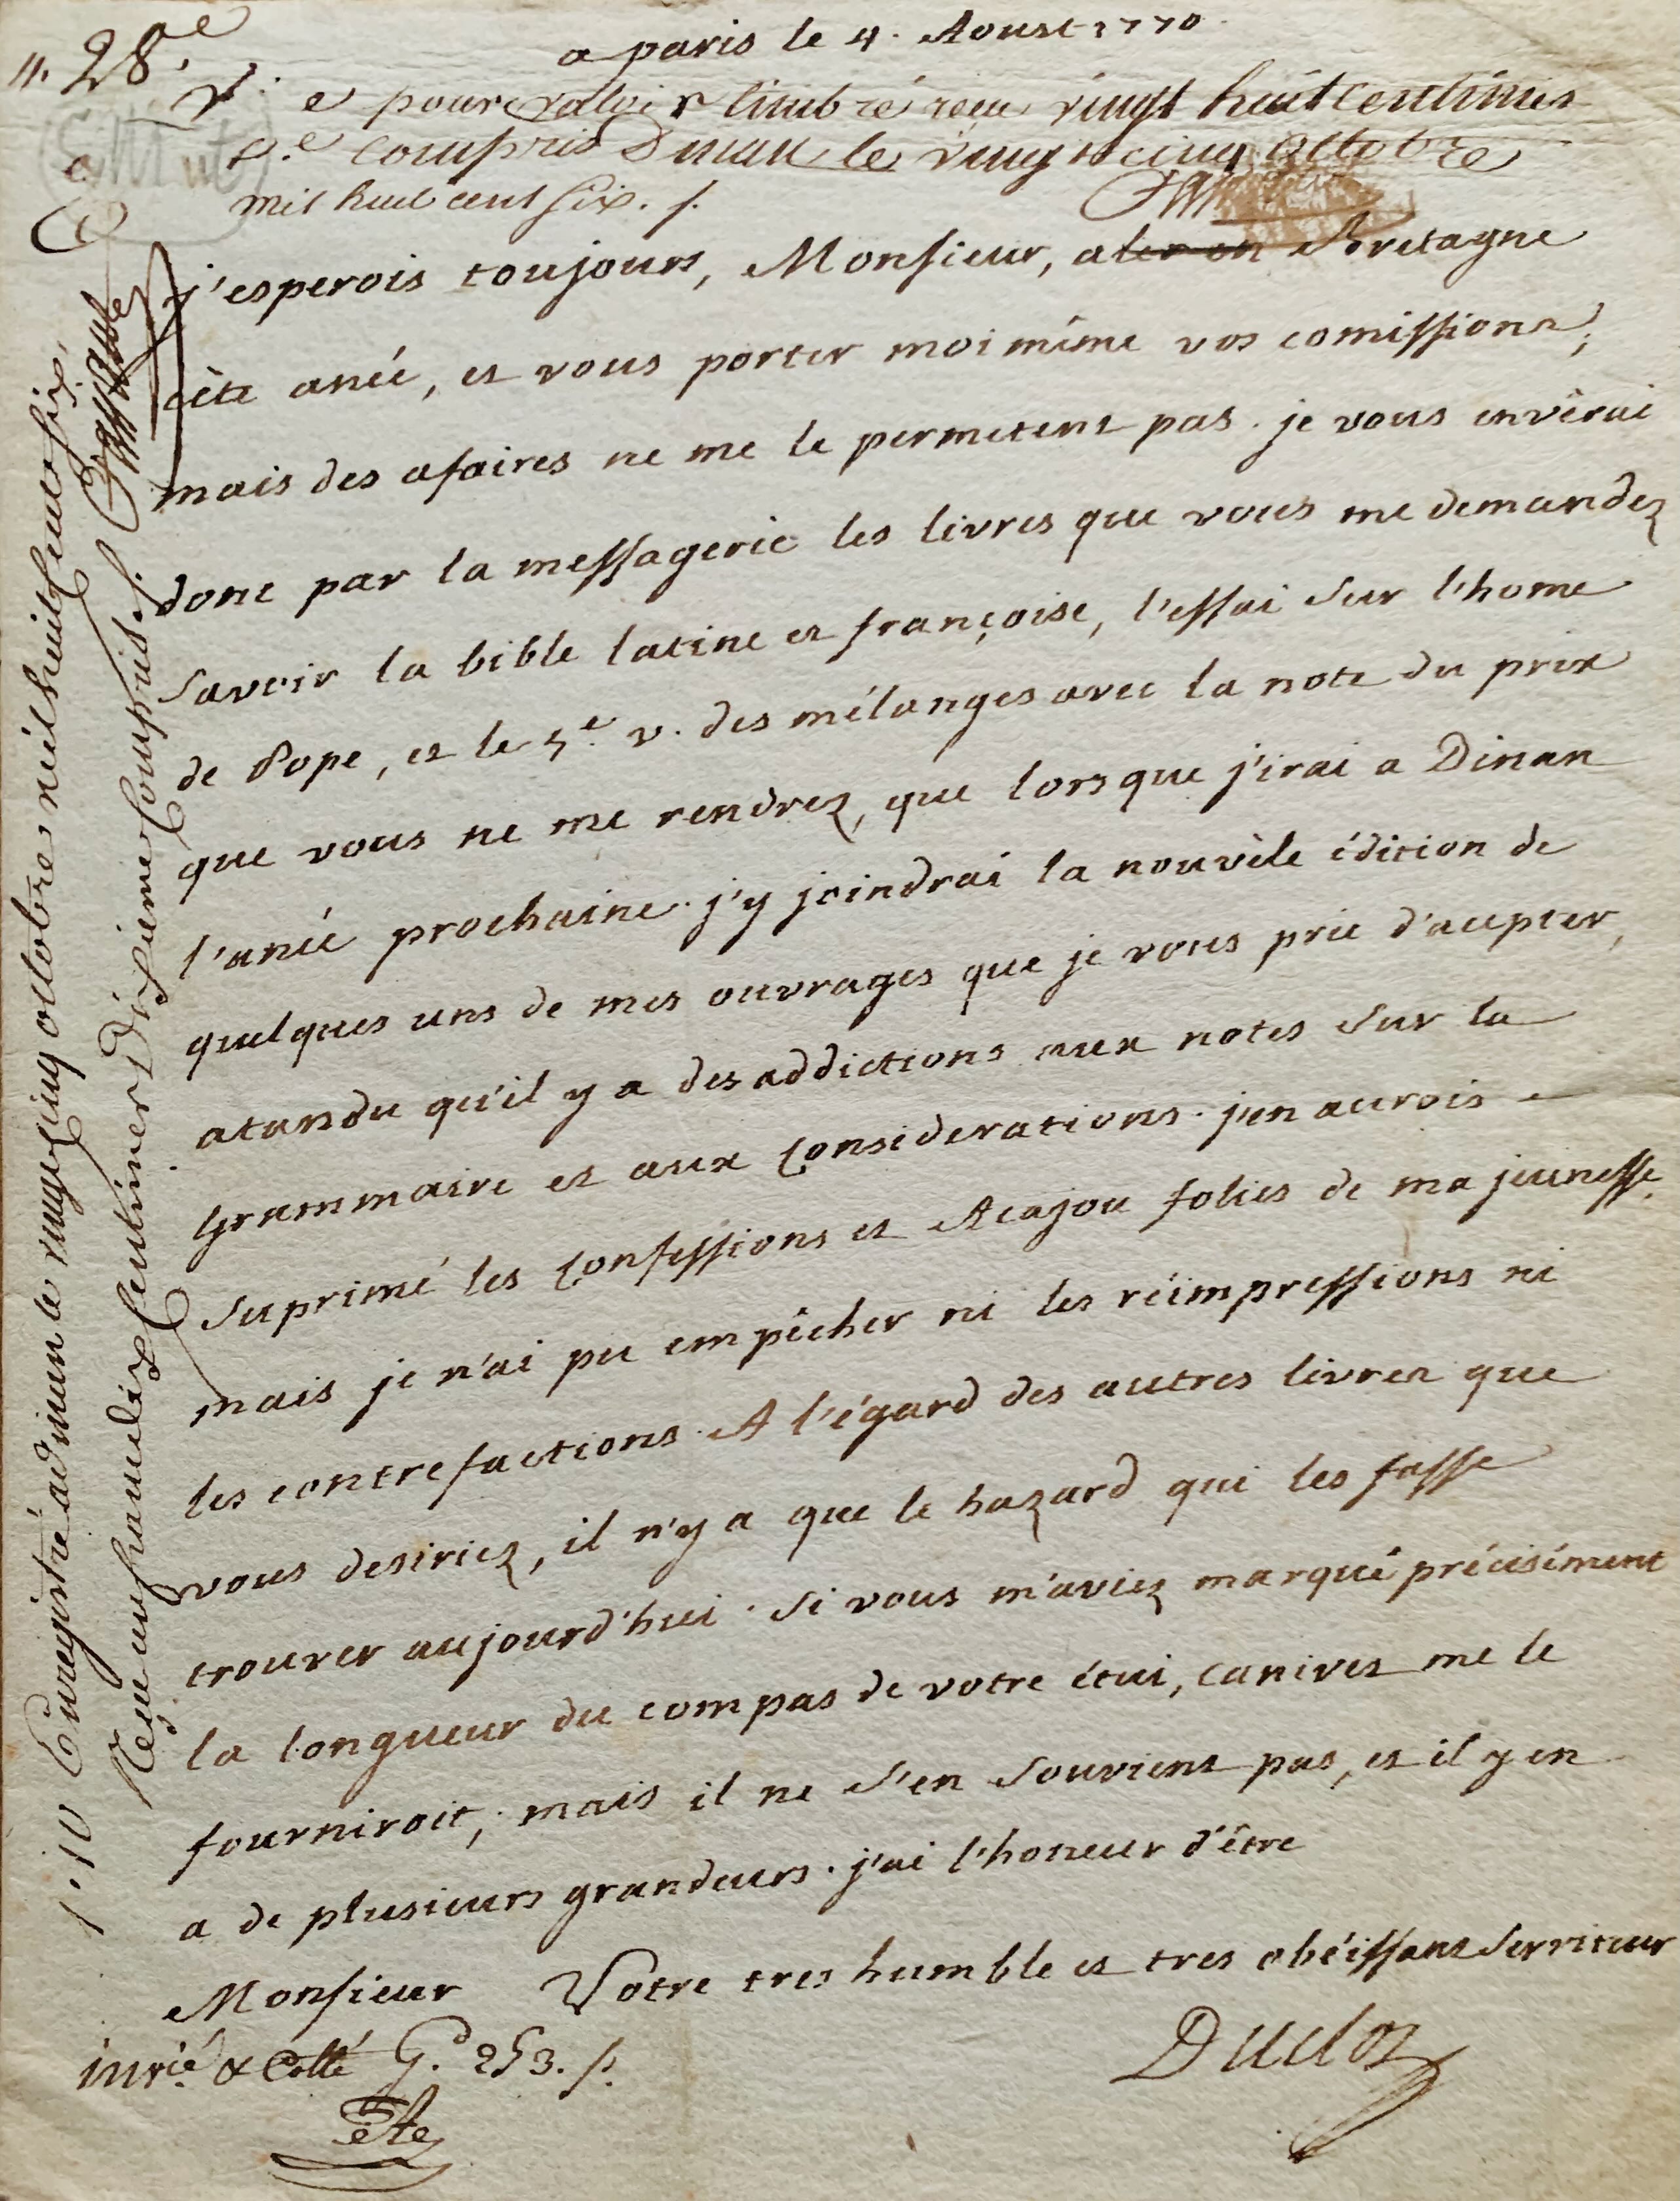 a paris le 4. Aoust 1770
28e
V. e pour valoir timbré reçu vingt huit centimes
compris Dinan le vingt cinq octobre
mil huit cent six.
j'esperois toujours, Monsieur, aler en Bretagne
cète anée, et vous porter moi même vos comissions;
mais des afaires ne me le permetent pas. je vous envèrai
donc par la messagerie les livres que vous me demandez
savoir la bible latine et françoise, l'essai sur l'home
de Pope, et le 5e. v. des mélanges avec la note du prix
que vous ne me rendrez, que lors que j'irai a Dinan
l'anée prochaine. j'y joindrai la nouvèle édition de
quelques uns de mes ouvrages que je vous prie d'acepter,
atandu qu'il y a des addictions aux notes sur la
Grammaire et aux Considerations. j'en aurois
suprimé les Confessions et Acajou folies de ma jeunesse,
mais je n'ai pu empêcher ni les réimpressions ni
les contrefactions. A l'égard des autres livres que
vous desiriez, il n'y a que le hazard qui les fasse
trouver aujourd'hui. Si vous m'aviez marqué précisément
la longueur du compas de votre étui, canivet me le
fourniroit; mais il ne s'en souvient pas, et il y en
a de plusieurs grandeurs. j'ai l'honeur d'être
Monsieur Votre tres humble et tres obéissant serviteur
Duclos
inrié & Collé G. 253.
Enregistré a dinan le vingt cinq octobre mil huit cent six,
Reçu un franc dix centimes Dixieme compris